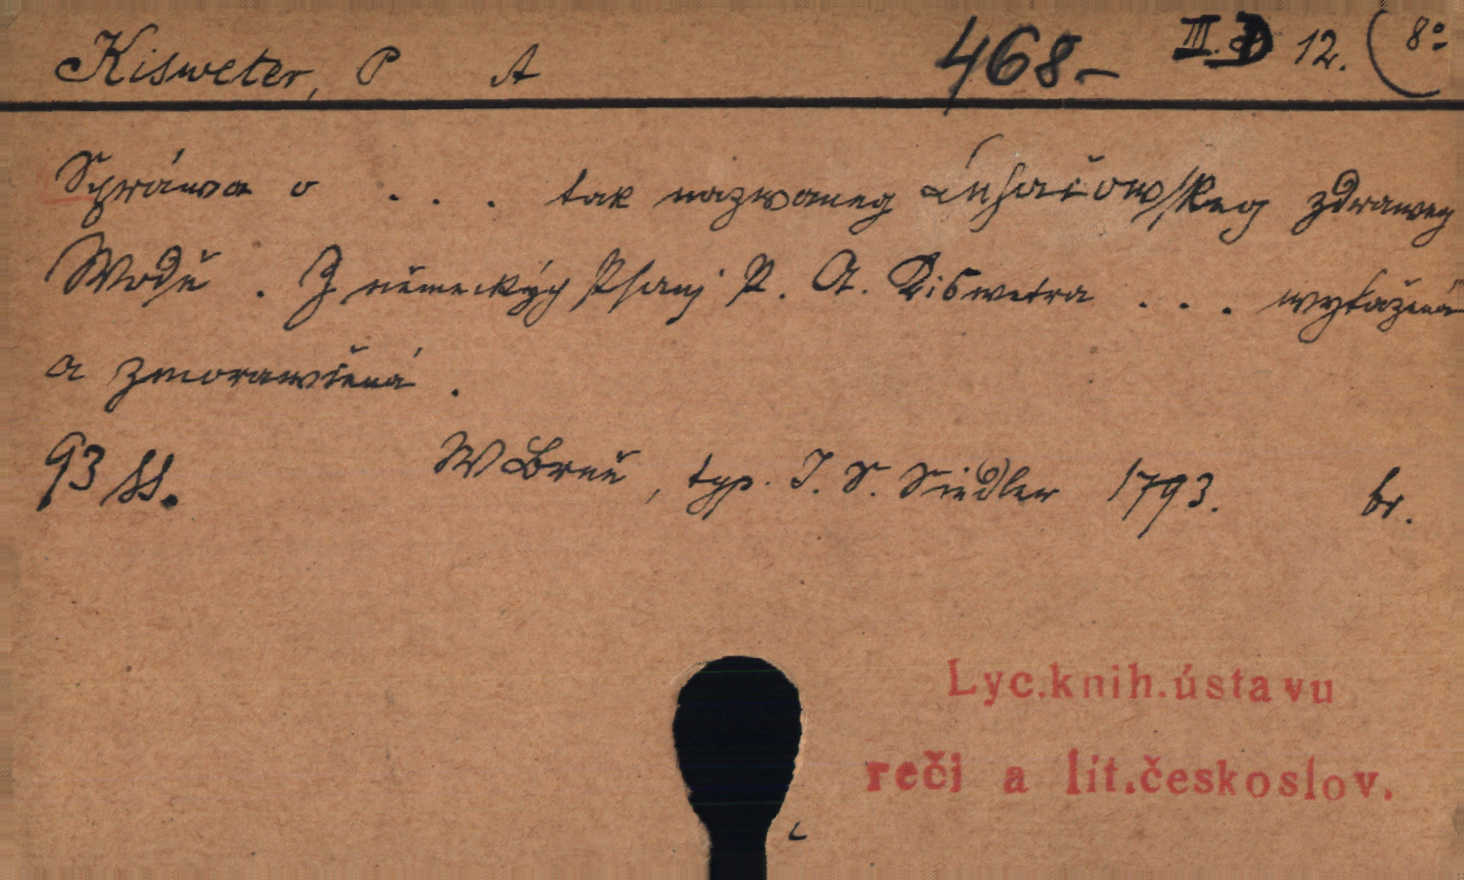 Kisweter, P A 468- III. D 12. (8°
Spráwa o . . . tak nazwaneg Luhačowskeg zdraweg
Wodě. Z německých Psanj P. A. Kiswetra . . . wytažená
a zmorawčená.
93 ss. W Brně, typ. J. S. Siedler 1793. br.
Lyc.knih.ústavu
reči a lit.českoslov.